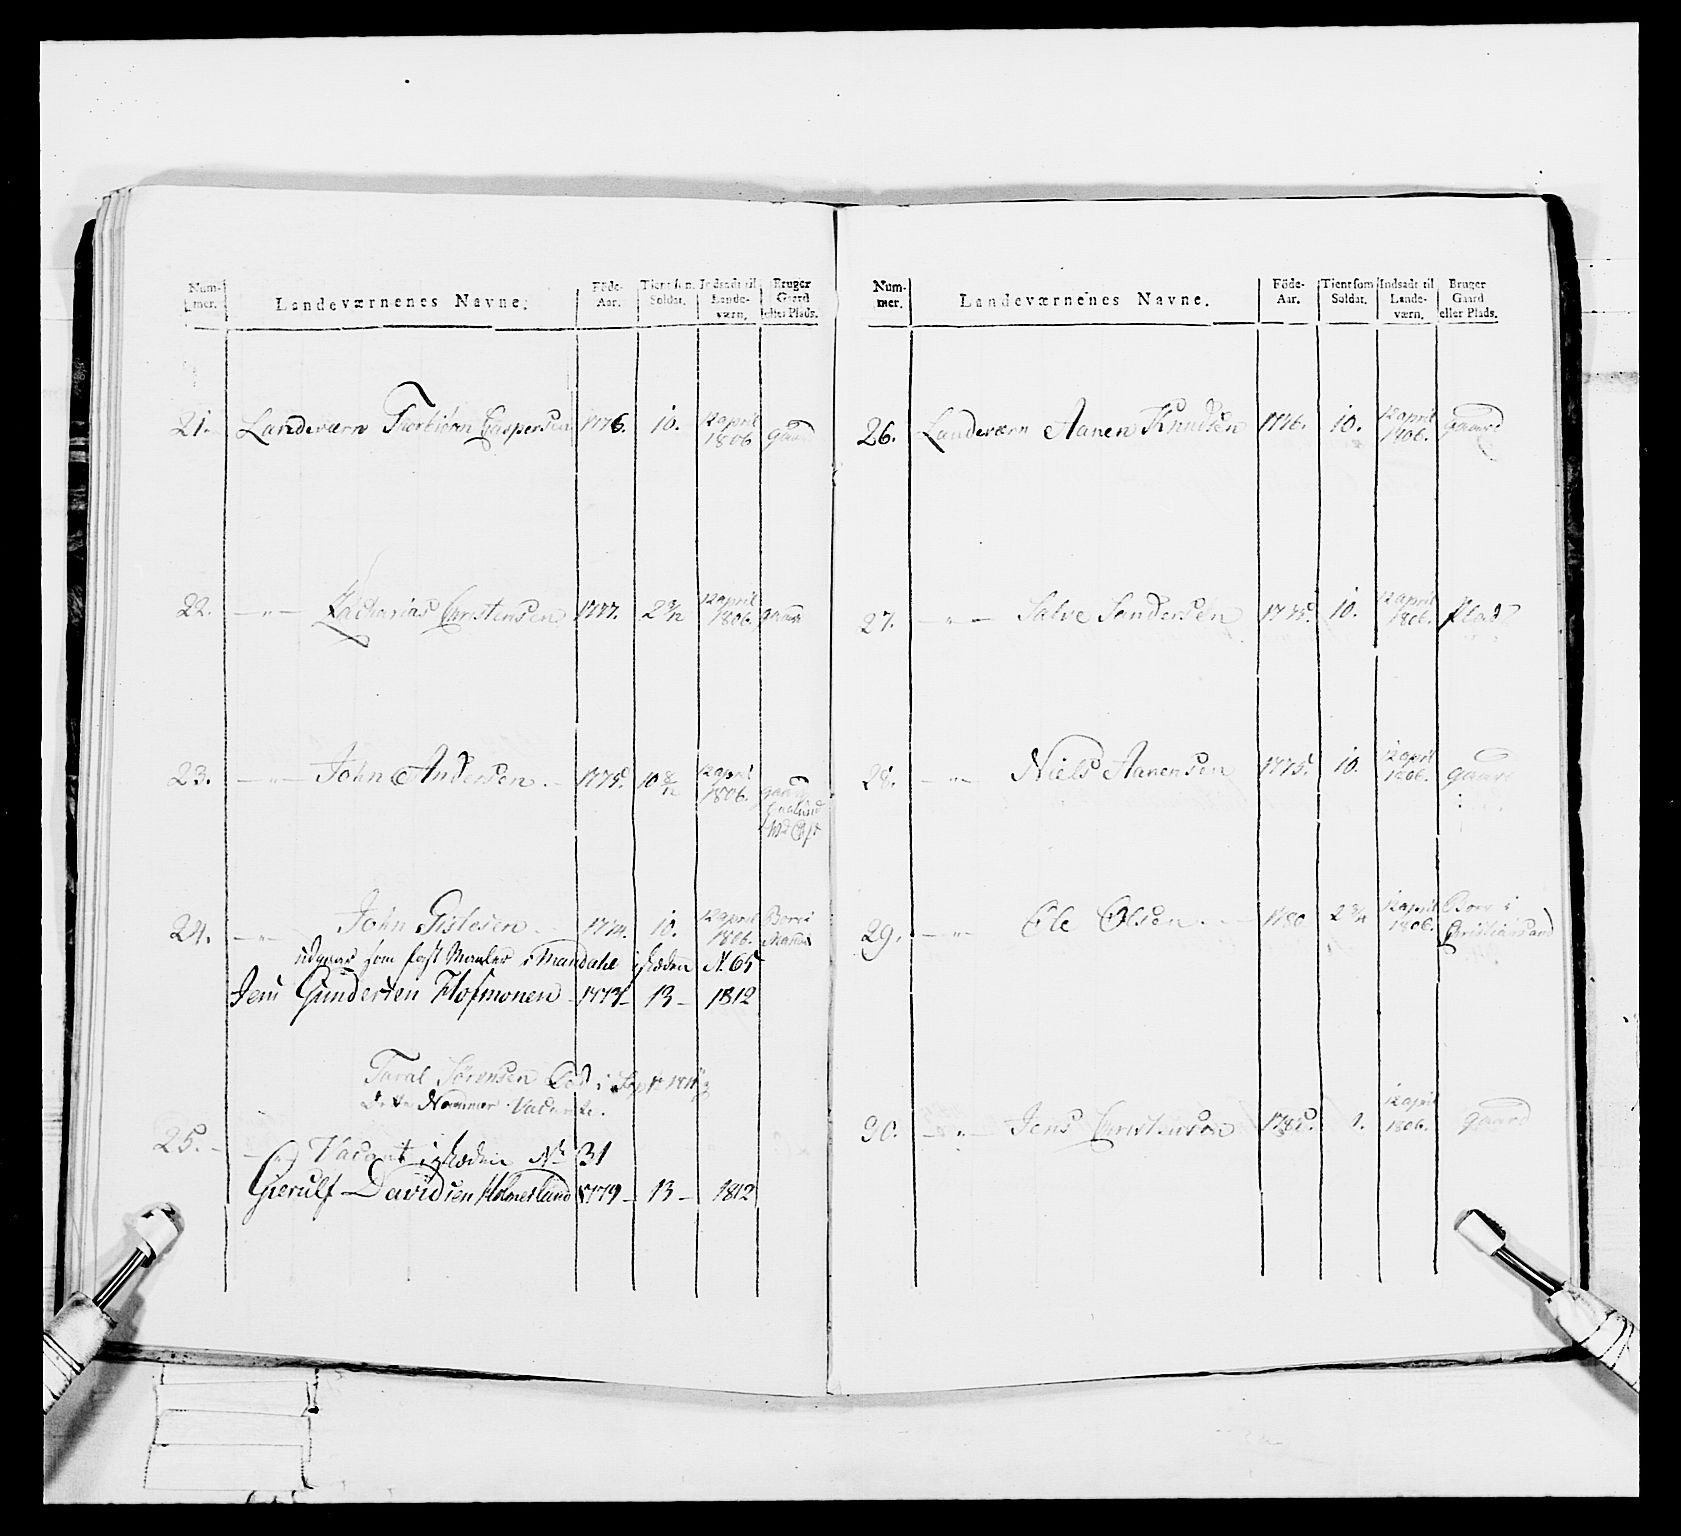 Num-mer. Landeværnenes Navne. Föde-Aar. Tient som Soldat. Indsadt til Lande-værn. Bruger Gaard eller Plads.
21. Landeværn Thorbiörn Caspersen 1776. 10. 12 april 1806 gaard
22. —"— Zacharias Christensen 1777. 2 9/12 12 april 1806. gaard
23. —"— John Andersen. 1775. 10 8/12 12 april 1806. gaard
24. —"— John Gislesen 10. 12 april 1806.
udgaar som fast i Mandahl isteden N. 65
Jens Gundersen Hofmonen - 1773 - 13 - 1812
Taral Sörensen Död i Sept
Dette Nommer Vacante.
25. - Vacant isteden No 31
Gierulf Davidsen Holmeslund 1779 - 13 - 1812
Num-mer. Landeværnenes Navne. Föde-Aar. Tient som Soldat. Indsadt til Lande-værn. Bruger Gaard eller Plads.
26. Landeværn Aanen Knudsen 1776. 10. 12 april 1806. gaard
27. —"— Salve Sandersen 1775. 10. 12 april 1806. Plads
28. —"— Niels Aanensen 1775. 10. 12 april 1806. gaard
29. —"— Ole Olsen. 1780 12 april 1806. Boer i Christiansand
30. —"— Jens Christensen 1785. 12 april 1806. gaard